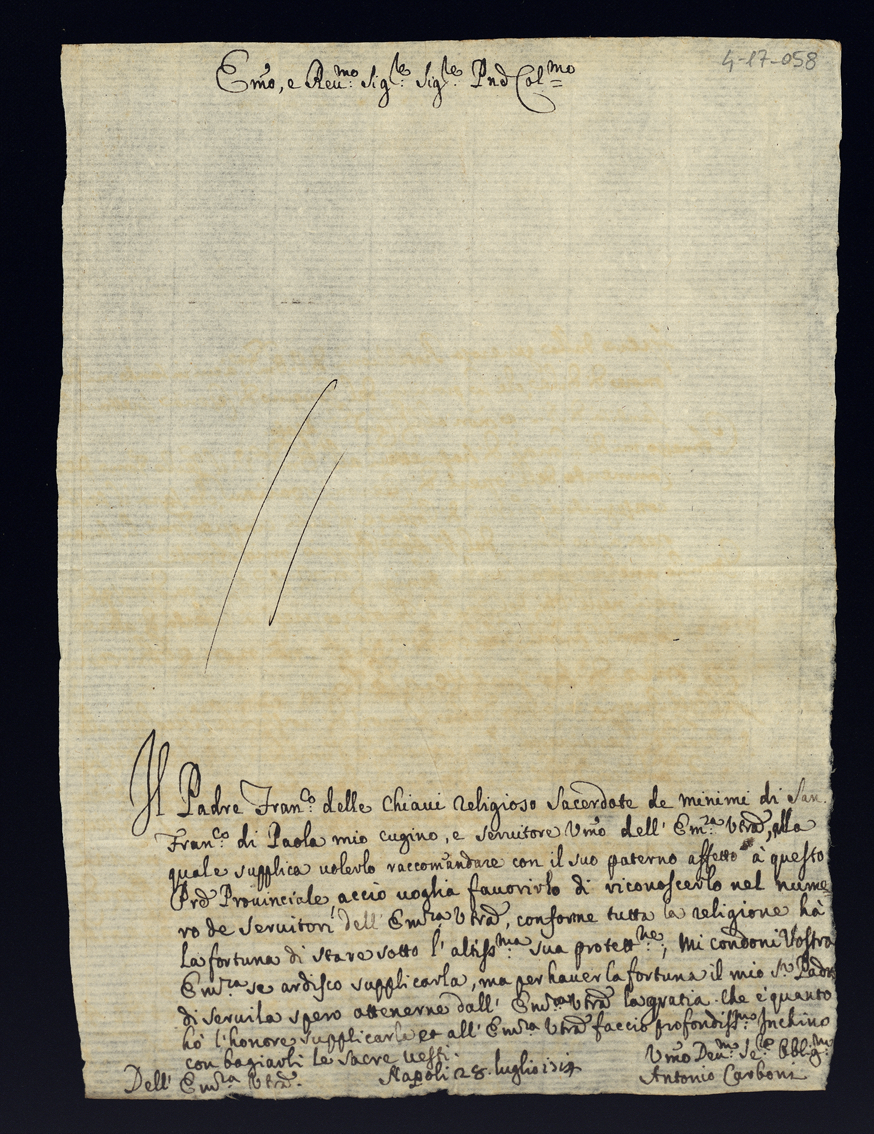 4-17-058
Em̃o, e Reu:mo Sig:re Sig:re Pnd Col:mo
Il Padre Fran:co delle Chiaui religioso Sacerdote de minimi di San
Fran:co di Paola mio cugino, e seruitore Vmõ dell' Em:za Vtrã, alla
quale supplica uolerlo raccomandare con il suo paterno affetto à questo
Prẽ Prouinciale acciò uoglia fauorirlo di riconoscerlo nel nume
ro de seruitori dell' Em:za Vtrã, conforme tutta la religione hà
la fortuna di stare sotto l' altiss:ma sua protett:ne, mi condoni Vostra
Em:za se ardisco supplicarla, ma per hauer la fortuna il mio S:r Padre
di seruila spero attenerne dall' Em:za Vtrã la gratia. Che è quanto
hò l'honore supplicarla et all' Em:za Vtrã faccio profondiss:mo Inchino
con bagiarli le sacre uesti.
Dell' Em:za Vtrã. Napoli 28. luglio
Vmõ Deu:mo Se:re Obblig:mo
Antonio Carboni